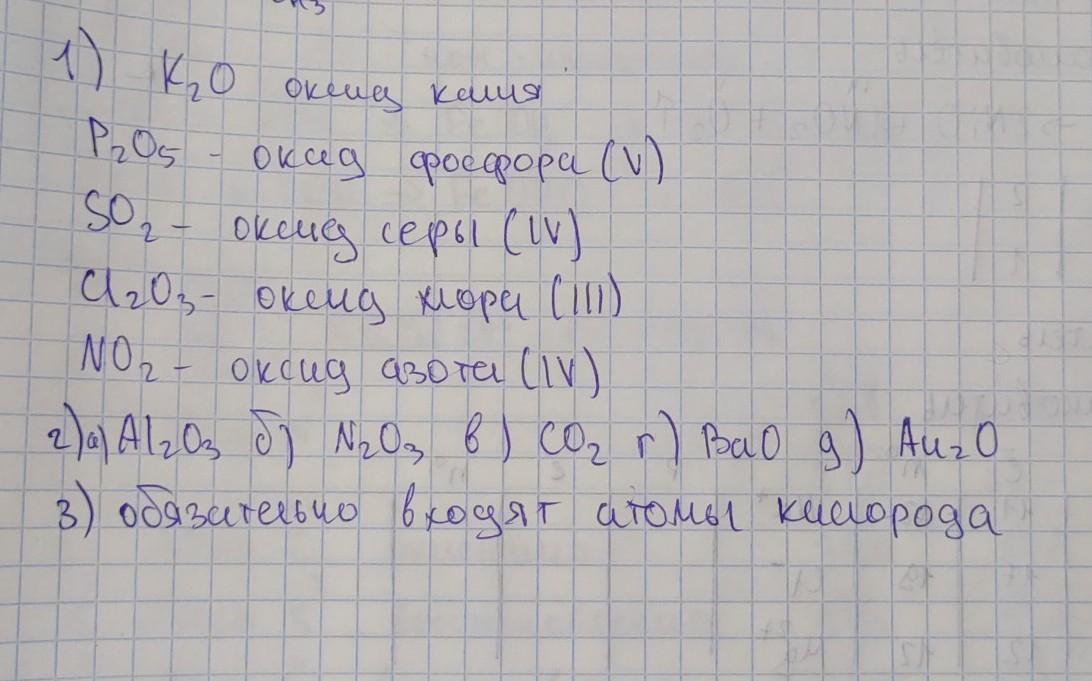 1) K₂O оксид калия
P₂O₅ - оксид фосфора (V)
SO₂ - оксид серы (IV)
Cl₂O₃ - оксид хлора (III)
NO₂ - оксид азота (IV)
2) а) Al₂O₃ б) N₂O₃ в) CO₂ г) BaO д) Au₂O
3) обязательно входят атомы кислорода